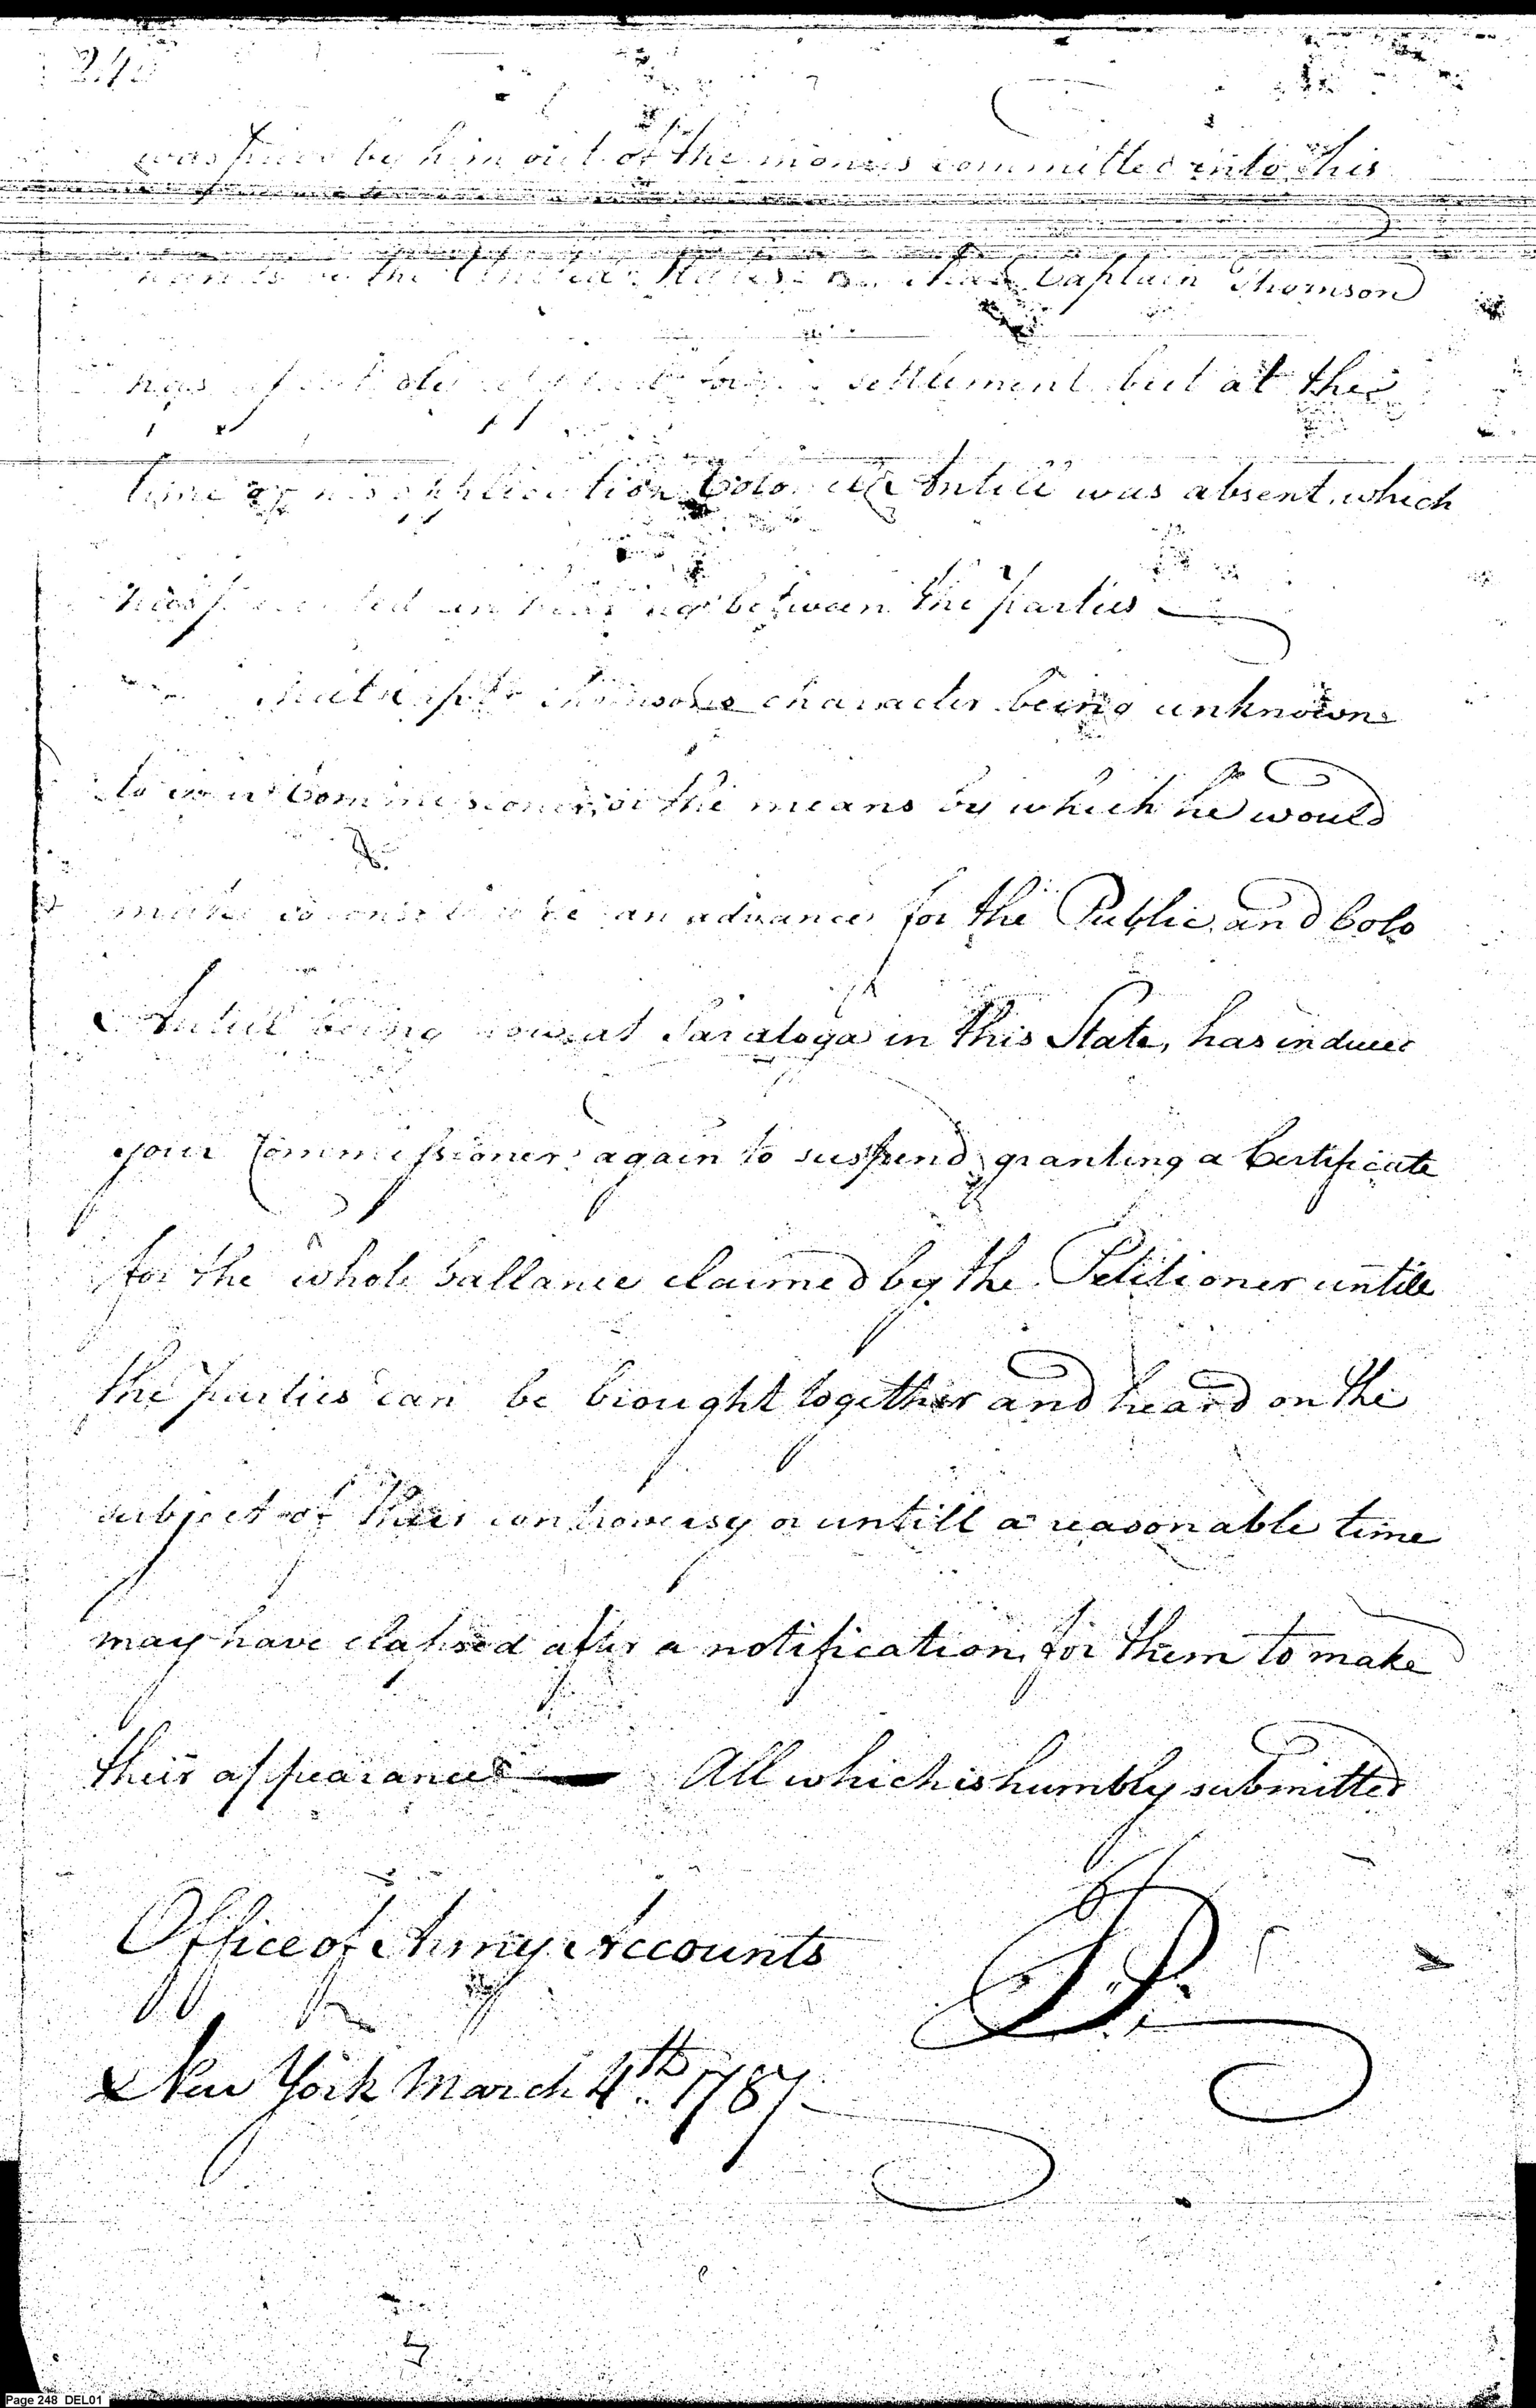 248
was paid by him out of the monies committed into his
hands the United States Captain Thomson
has settlement but at the
time of his application Colonel Antill was absent, which
has prevented an hearing between the parties
That Capt. Thomsons character being unknown
to your Commissioner, or the means by which he would
make so considerable an advance for the Public, and Colo
Antill being now at Saratoga in this State, has induced
your Commissioner again to suspend granting a Certificate
for the whole ballance claimed by the Petitioner untill
the parties can be brought together and heard on the
subject of their controversy or untill a reasonable time
may have elapsed after a notification for them to make
their appearance — All which is humbly submitted
Office of Army Accounts
New York March 4th. 1787.
Page 248 DEL01